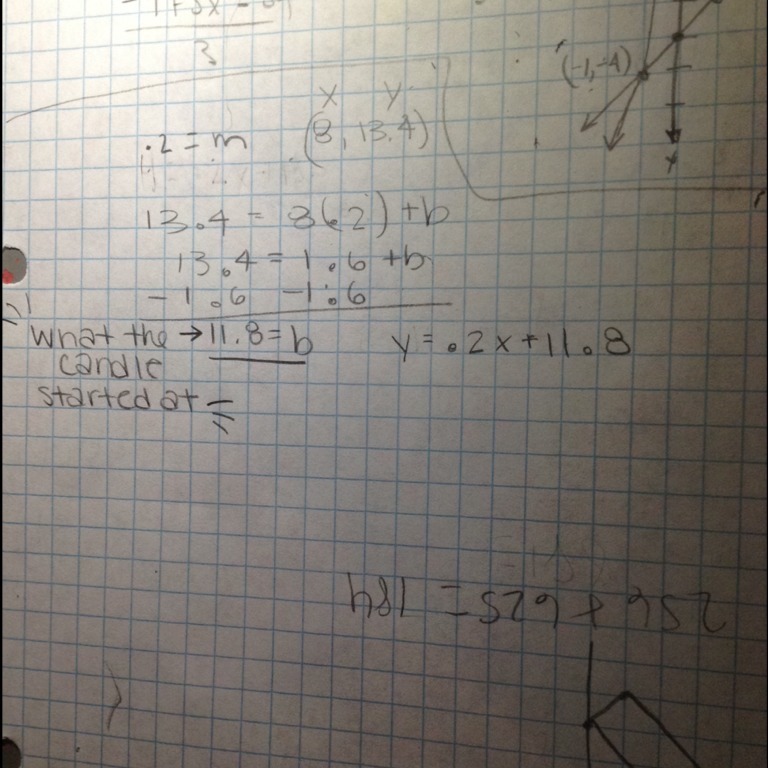 3
(-1,-4)
x y
.2 = m (8, 13.4)
13.4 = 8(.2) + b
13.4 = 1.6 + b
-1.6 -1.6
What the → 11.8 = b y = .2x + 11.8
candle
started at
256 + 625 =